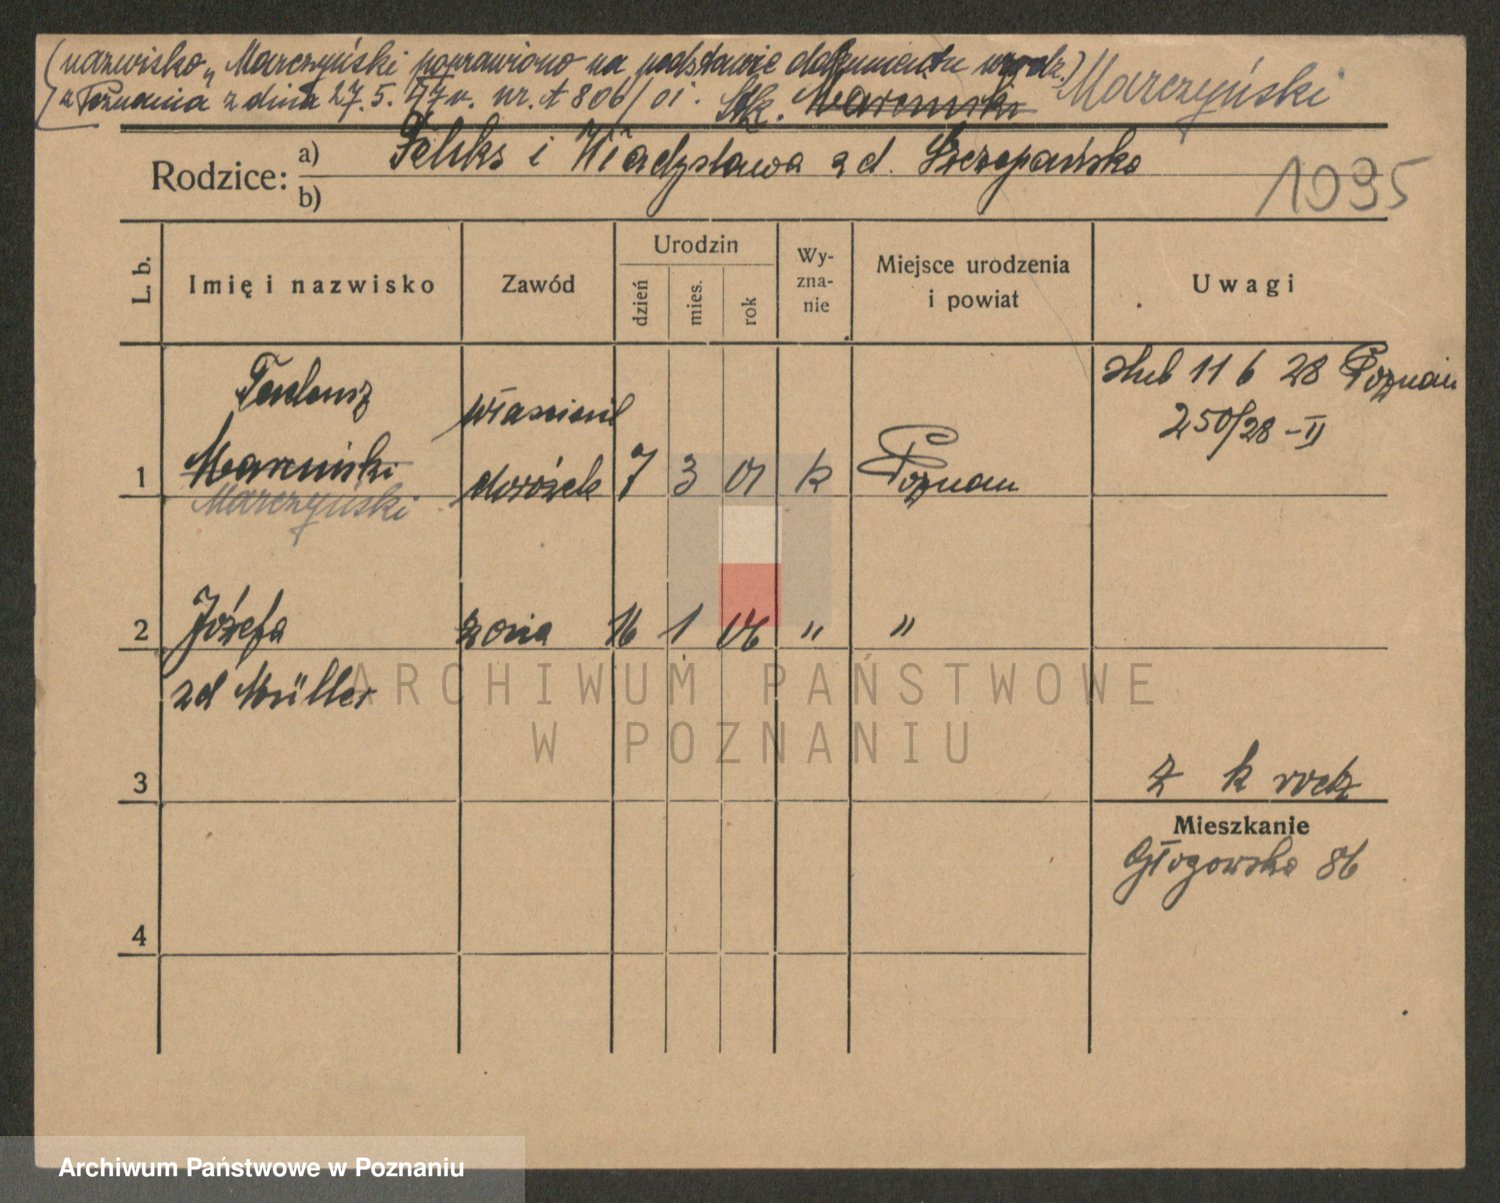 (nazwisko „Marczyński poprawiono na podstawie dokumentu urodz.)
z Poznania z dnia 27.5.47r. nr. A 806/01. Marciński Marczyński
Rodzice: a) Feliks i Władysława zd. Szczepańska
b)
1035
L. b. Imię i nazwisko Zawód Urodzin dzień mies. rok Wy-zna-nie Miejsce urodzenia i powiat Uwagi
Tadeusz właściciel ślub 11 6 28 Poznań
250/28-II
1 Marciński dorożek 7 3 01 k Poznań
Marczyński
2 Józefa żona 16 1 06 " "
zd Müller
ARCHIWUM PAŃSTWOWE
W POZNANIU
3 z k
Mieszkanie
Głogowska 86
4
Archiwum Państwowe w Poznaniu